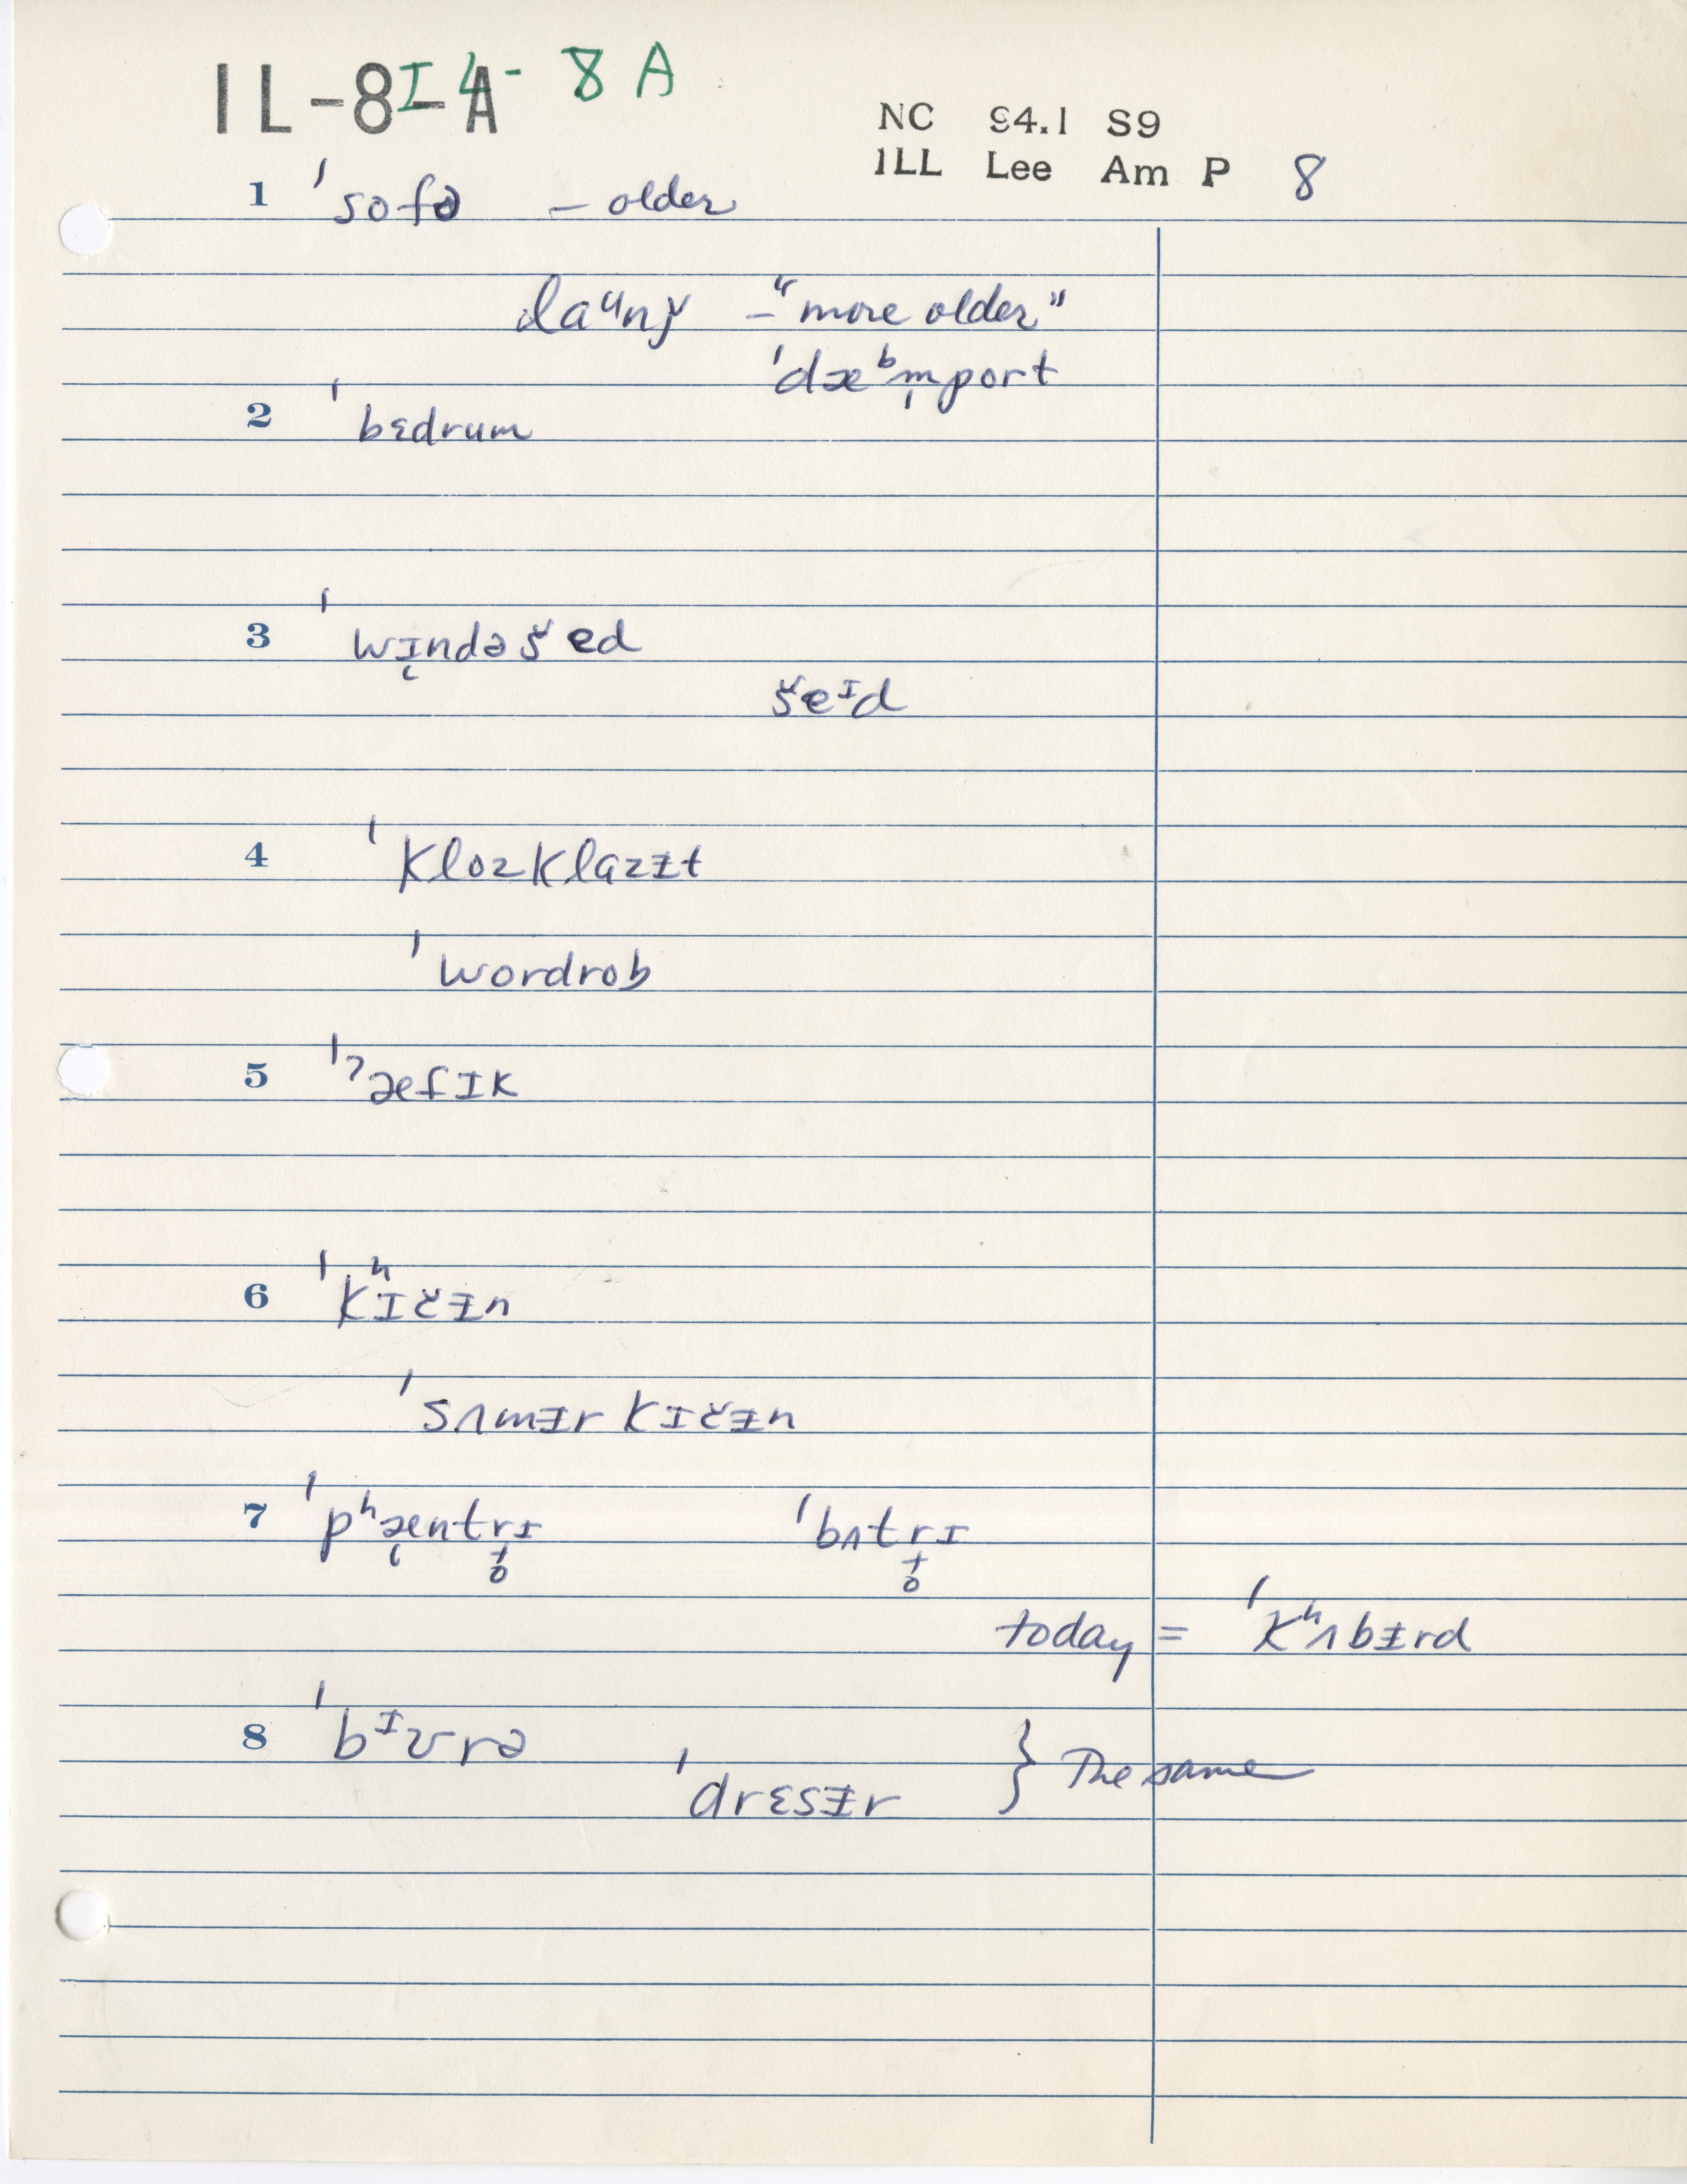 IL-8-A I4-8A
NC 94.1 S9
ILL Lee Am P 8
1 ˈsofə – older
laᵘnǰ – "more older"
ˈdæᵇm̩port
2 ˈbɛdrum
3 ˈwɪ̨ndəšed
šeᶦd
4 ˈklozklazɨt
ˈwordrob
5 ˈˀæfɪk
6 ˈkʰɪčɨn
ˈsʌmɨr kɪčɨn
7 ˈpʰæntrɪ ˈbʌtrɪ
today = ˈkʰʌbɨrd
8 ˈbᶦʊrə
ˈdrɛsɨr } The same